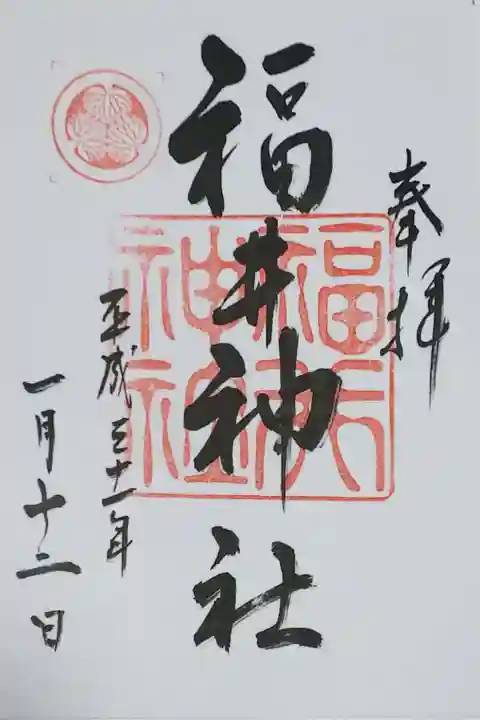 奉拝
福井神社
福井神社
平成三十一年
一月十二日